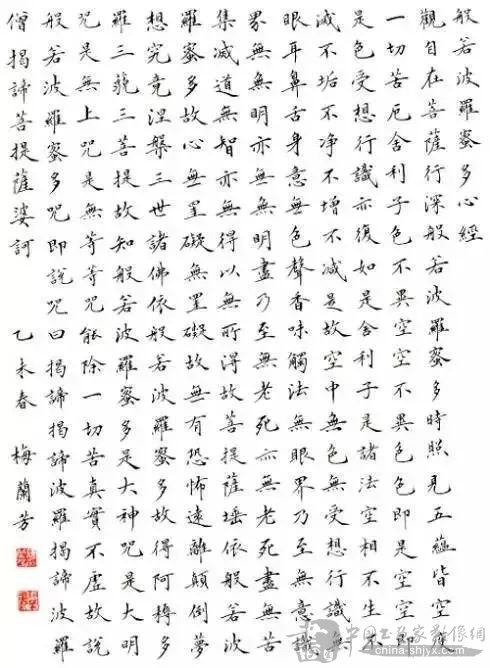 般若波羅蜜多心經
觀自在菩薩行深般若波羅蜜多時照見五蘊皆空度
一切苦厄舍利子色不異空空不異色色即是空空即
是色受想行識亦復如是舍利子是諸法空相不生不
滅不垢不净不增不減是故空中無色無受想行識無
眼耳鼻舌身意無色聲香味觸法無眼界乃至無意識
界無無明亦無無明盡乃至無老死亦無老死盡無苦
集滅道無智亦無得以無所得故菩提薩埵依般若波
羅蜜多故心無罣礙無罣礙故無有恐怖遠離顛倒夢
想究竟涅槃三世諸佛依般若波羅蜜多故得阿耨多
羅三藐三菩提故知般若波羅蜜多是大神咒是大明
咒是無上咒是無等等咒能除一切苦真實不虛故說
般若波羅蜜多咒即說咒曰揭諦揭諦波羅揭諦波羅
僧揭諦菩提薩婆訶 乙未春 梅蘭芳
中国书画家影像网
china-shjyx.com